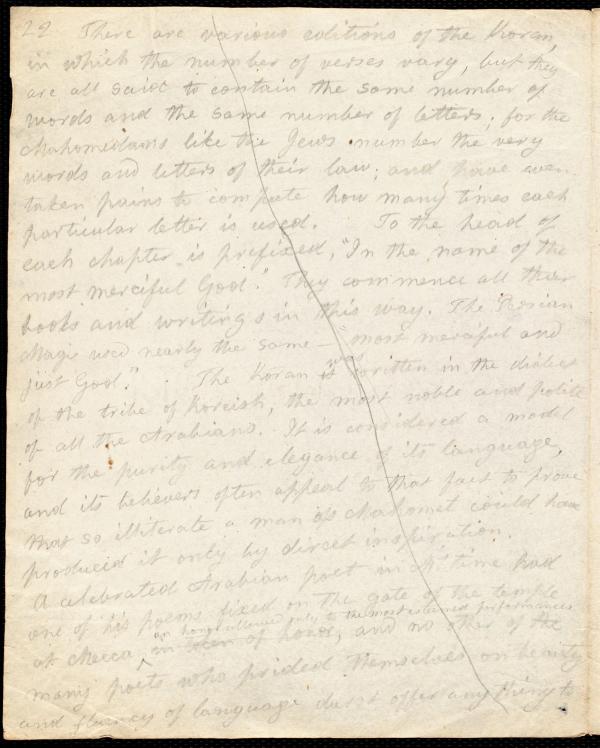 29 There are various editions of the Koran,
in which the number of verses vary, but they
are all said to contain the same number of
words and the same number of letters; for the
Mahomedans like the Jews number the very
words and letters of their law; and have even
taken pains to compute how many times each
particular letter is used. To the head of
each chapter is prefixed, "In the name of the
most merciful God." They commence all their
books and writings in this way. The Persian
Magi used nearly the same — "most merciful and
just God." The Koran is was written in the dialect
of the tribe of Koreish, the most noble and polite
of all the Arabians. It is considered a model
for the purity and elegance of its language,
and its believers often appeal to that fact to prove
that so illiterate a man as Mahomet could have
produced it only by direct inspiration.
A celebrated Arabian poet in M's time had
one of his poems fixed on the gate of the temple
an honor allowed only to the most esteemed performances
at Mecca, in token of honor, and no other of the
many poets who prided themselves on beauty
and fluency of language durst offer any thing to